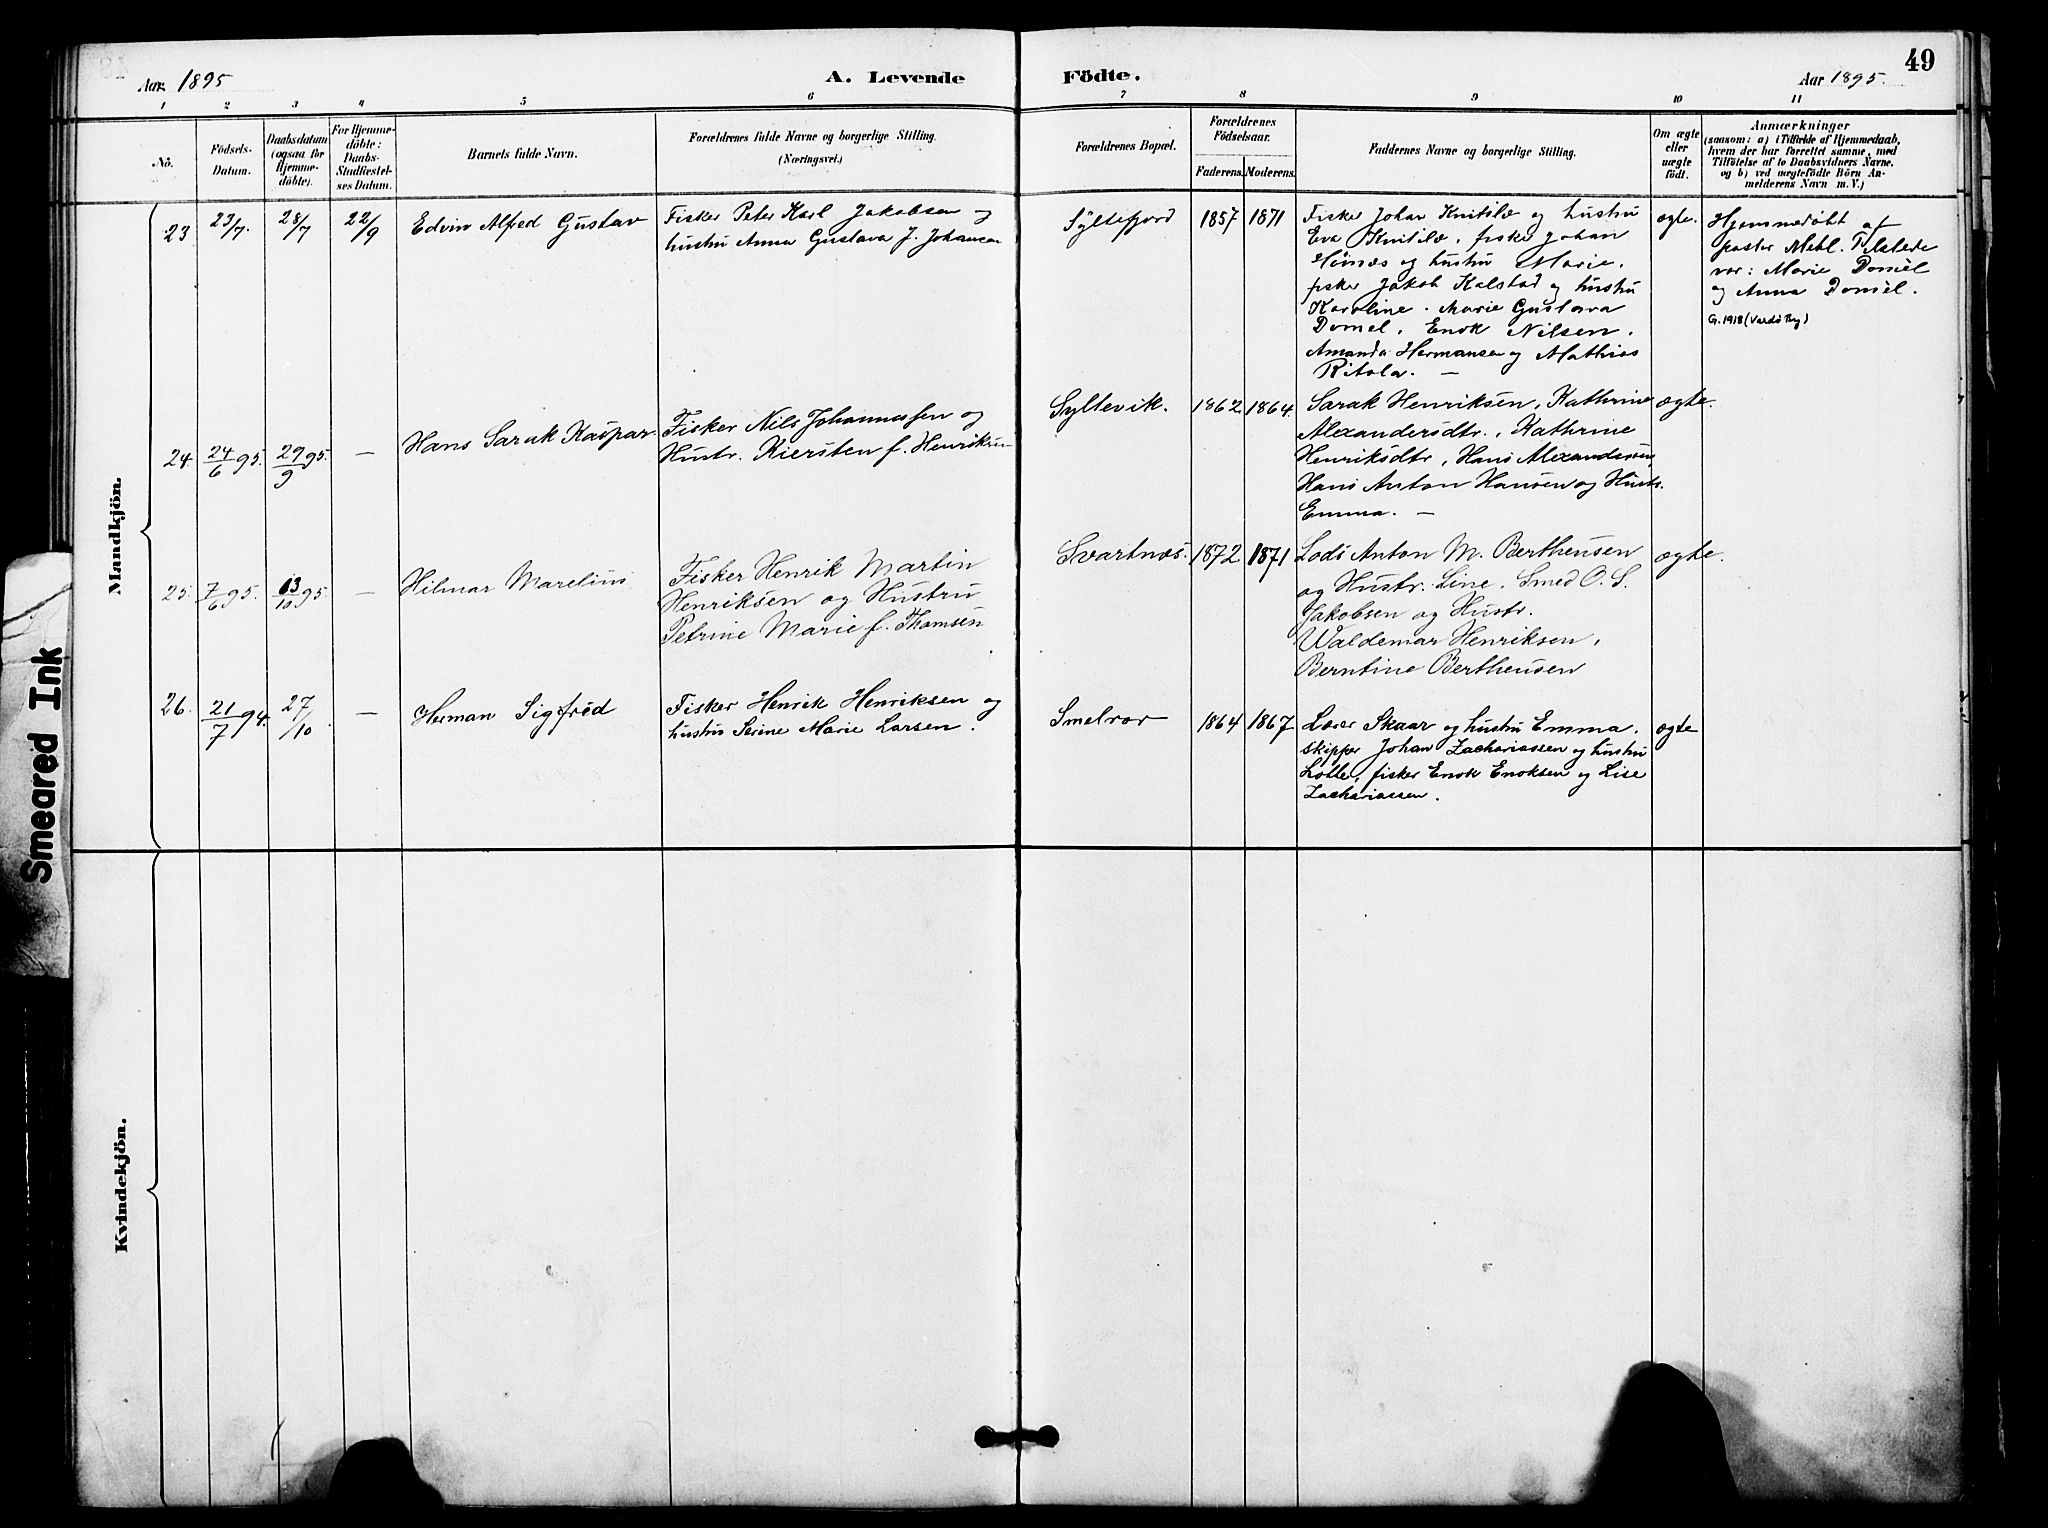 49
Aar 1895
A. Levende
Födte.
Aar 1895.
1 2 3 4 5 6 7 8 9 10 11
Nö.
Födsels-
Datum.
Daabsdatum
(ogsaa för
Hjemme-
döbte).
For Hjemme-
döbte:
Daabs-
Stadfæstel-
ses Datum.
Barnets fulde Navn.
Forældrenes fulde Navne og borgerlige Stilling.
(Næringsvei.)
Forældrenes Bopæl.
Forældrenes
Födselsaar.
Faderens. Moderens.
Faddernes Navne og borgerlige Stilling.
Om ægte
eller
uægte
födt.
Anmærkninger
(saasom: a) i Tilfælde af Hjemmedaab,
hvem der har forrettet samme, med
Tilföielse af to Daabsvidners Navne.
og b) ved uægtefödte Börn An-
melderens Navn m. V.)
Mandkjön.
23 23/7. 28/7 22/9 Edvin Alfred Gustav
Fisker Peter Karl Jakobsen og
hustru Anna Gustava J. Johansen
Syltefjord 1857 1871
Fisker Johan Knitilæ og hustru
Eva Knitilæ, fisker Johan
og hustru Marie.
fisker Jakob Kalstad og hustru
Karoline. Marie Gustava
Domel, Enok Nilsen.
Amanda Hermansen og Mathias
Ritola. —
ægte.
Hjemmedøbt af
pastor Mehl. Tilstede
var: Marie Domel
og Anna Domel.
G. 1918 (Vardö By)
24. 24/6 95. 29/9 95. — Hans Sarak Kaspar.
Fisker Nils Johannessen og
Hustr. Kiersten f. Henriksen
Syltevik. 1862 1864.
Sarak Henriksen, Kathrine
Alexandersdtr., Kathrine
Henriksdtr, Hans Alexandersen,
Hans Anton Hansen og Hustr.
Emma. —
ægte.
25. 7/6 95. 13/10 95. — Hilmar Marelius
Fisker Henrik Martin
Henriksen og Hustru
Petrine Marie f. Thomsen
Svartnæs. 1872 1871
Lods Anton M. Bertheusen
og Hustr. Line. Smed O. S.
Jakobsen og Hustr.
Waldemar Henriksen,
Berntine Bertheusen
ægte.
26. 21/7 94. 27/10 — Herman Sigfröd
Fisker Henrik Henriksen og
hustru Serine Marie Larsen.
Smelror 1864 1867
Lærer Skaar og hustru Emma.
skipper Johan Zachariassen og hustru
Lotte, fisker Enok Enoksen og Lise
Zachariassen.
ægte
Kvindekjön.
Smeared Ink